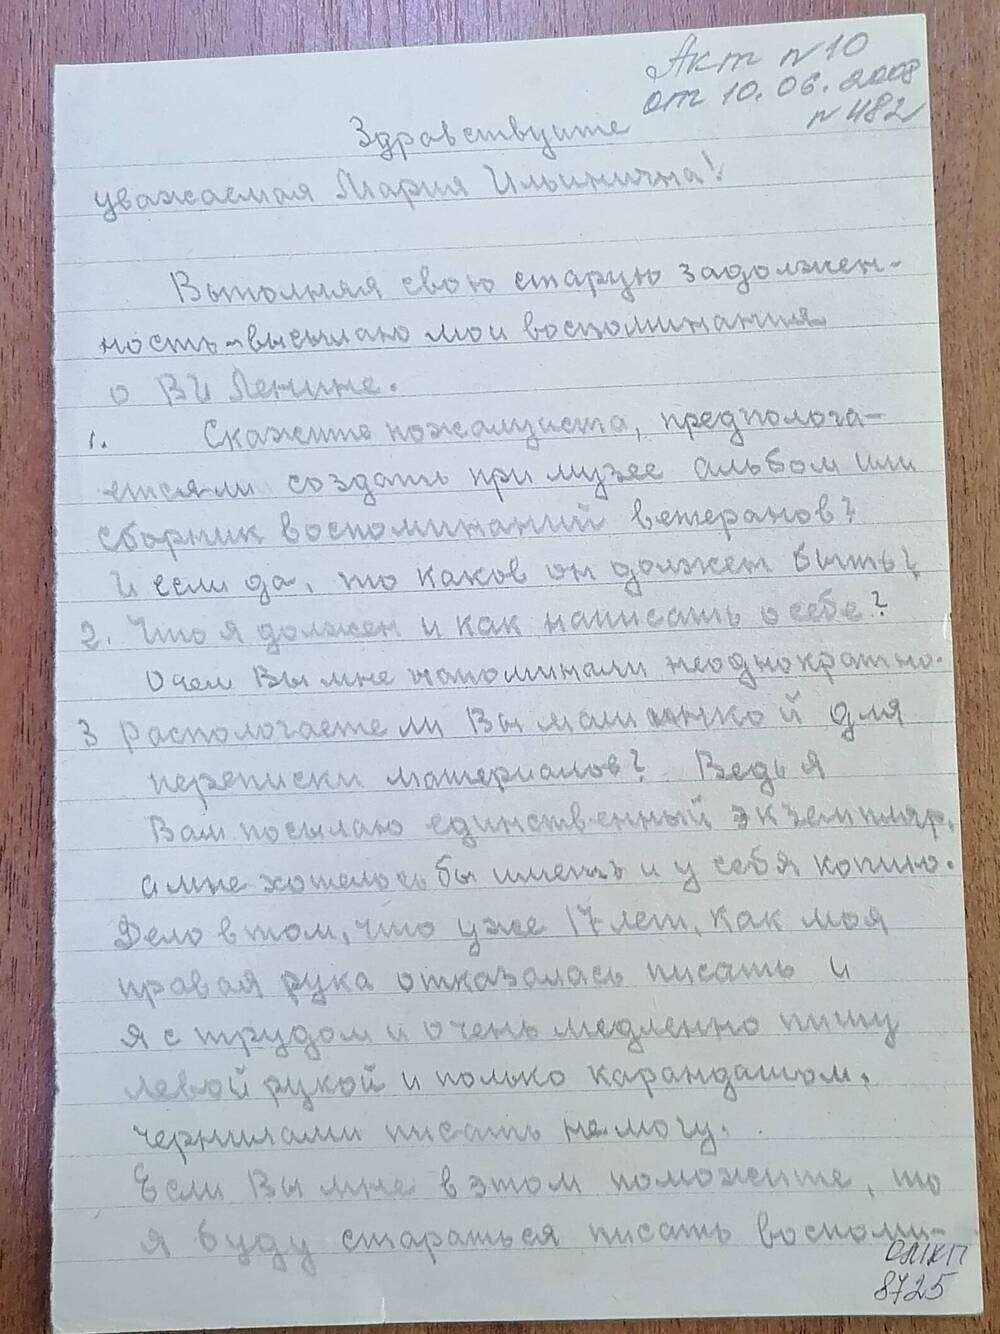 Акт N 10
от 10.06.2008
N 482
Здравствуите
уважаемая Мария Ильинична!
Выполняя свою старую задолжен-
ность-высылаю мои воспоминания
о ВИ Ленине.
1. Скажите пожалуиста, предполога-
ется ли создать при музее альбом или
сборник воспоминаний ветеранов?
И если да, то каков он должен быть?
2. Что я должен и как написать о себе?
О чем Вы мне напоминали неоднократно.
3 Распологаете ли Вы машинкой для
переписки материалов? Ведь я
Вам посылаю единственный экземпляр,
а мне хотелось бы иметь и у себя копию.
Дело в том, что уже 17 лет, как моя
правая рука отказалась писать и
я с трудом и очень медленно пишу
левой рукой и только карандашом,
чернилами писать не могу.
Если Вы мне в этом поможете, то
я буду стараться писать воспоми-
СМКП
8725